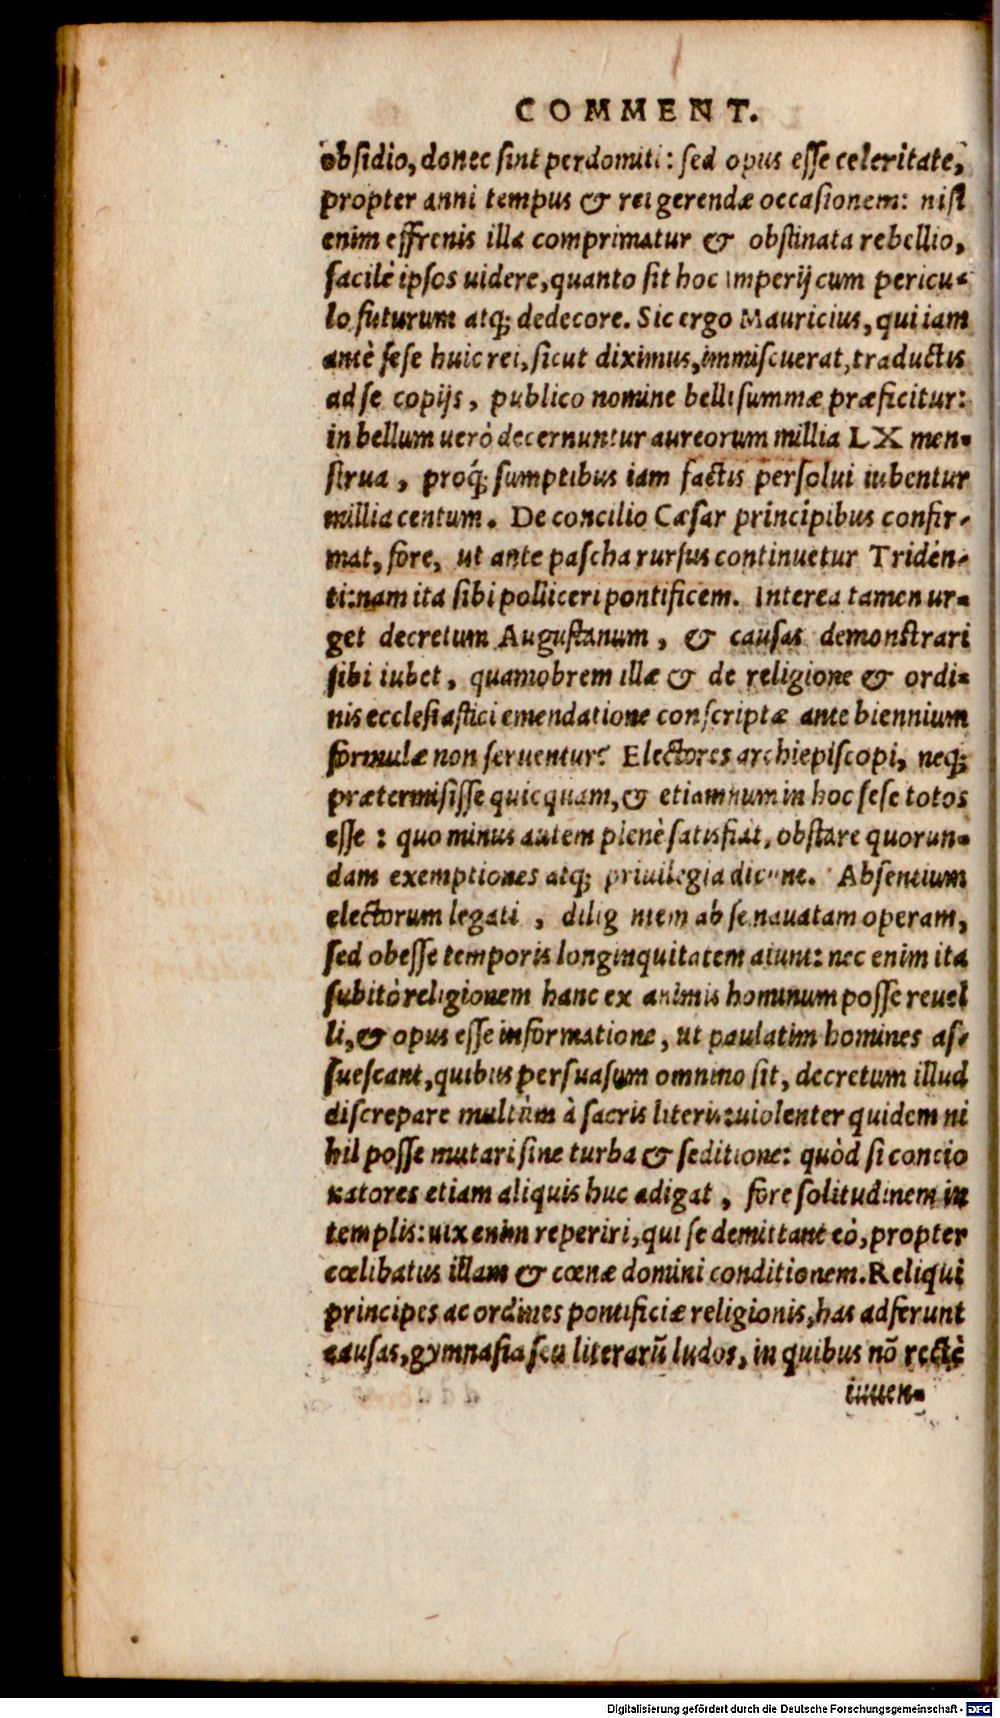 COMMENT.
obsidio, donec sint perdomiti: sed opus esse celeritate,
propter anni tempus & rei gerendæ occasionem: nisi
enim effrenis illa comprimatur & obstinata rebellio,
facilè ipsos uidere, quanto sit hoc Imperij cum pericu-
lo futurum atq; dedecore. Sic ergo Mauricius, qui iam
antè sese huic rei, sicut diximus, immiscuerat, traductis
ad se copijs, publico nomine belli summæ præficitur:
in bellum uerò decernuntur aureorum millia LX men-
strua, proq́; sumptibus iam factis persolui iubentur
millia centum. De concilio Cæsar principibus confir-
mat, fore, ut ante pascha rursus continuetur Tridén-
ti: nam ita sibi polliceri pontificem. Interea tamen ur-
get decretum Augustanum, & causas demonstrari
sibi iubet, quamobrem illæ & de religione & ordi-
nis ecclesiastici emendatione conscriptæ ante biennium
formulæ non seruentur? Electores archiepiscopi, neq;
prætermisisse quicquam, & etiamnum in hoc sese totos
esse: quo minus autem plenè satisfiat, obstare quorun-
dam exemptiones atq; priuilegia dicunt. Absentium
electorum legati, dilig ntem ab se nauatam operam,
sed obesse temporis longinquitatem aiunt: nec enim ita
subitò religionem hanc ex animis hominum posse reuel
li, & opus esse informatione, ut paulatim homines as-
suescant, quibus persuasum omnino sit, decretum illud
discrepare multùm à sacris literis: uiolenter quidem ni
hil posse mutari sine turba & seditione: quòd si concio
natores etiam aliquis huc adigat, fore solitudinem in
templis: uix enim reperiri, qui se demittant eò, propter
cœlibatus illam & cœnæ domini conditionem. Reliqui
principes ac ordines pontificiæ religionis, has adferunt
causas, gymnasia seu literarũ ludos, in quibus nõ rectè
iuuen-
Digitalisierung gefördert durch die Deutsche Forschungsgemeinschaft - DFG